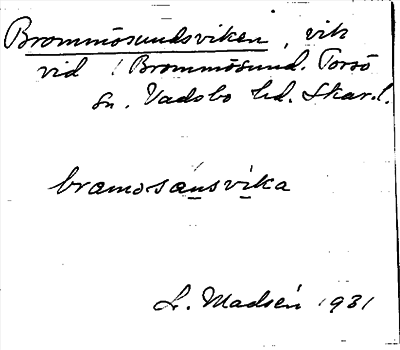 Brommösundsviken, vik
vid Brommösund. Torsö
sn. Vadsbo hd. Skar.l.
bramosånsvika
L. Madsén 1931